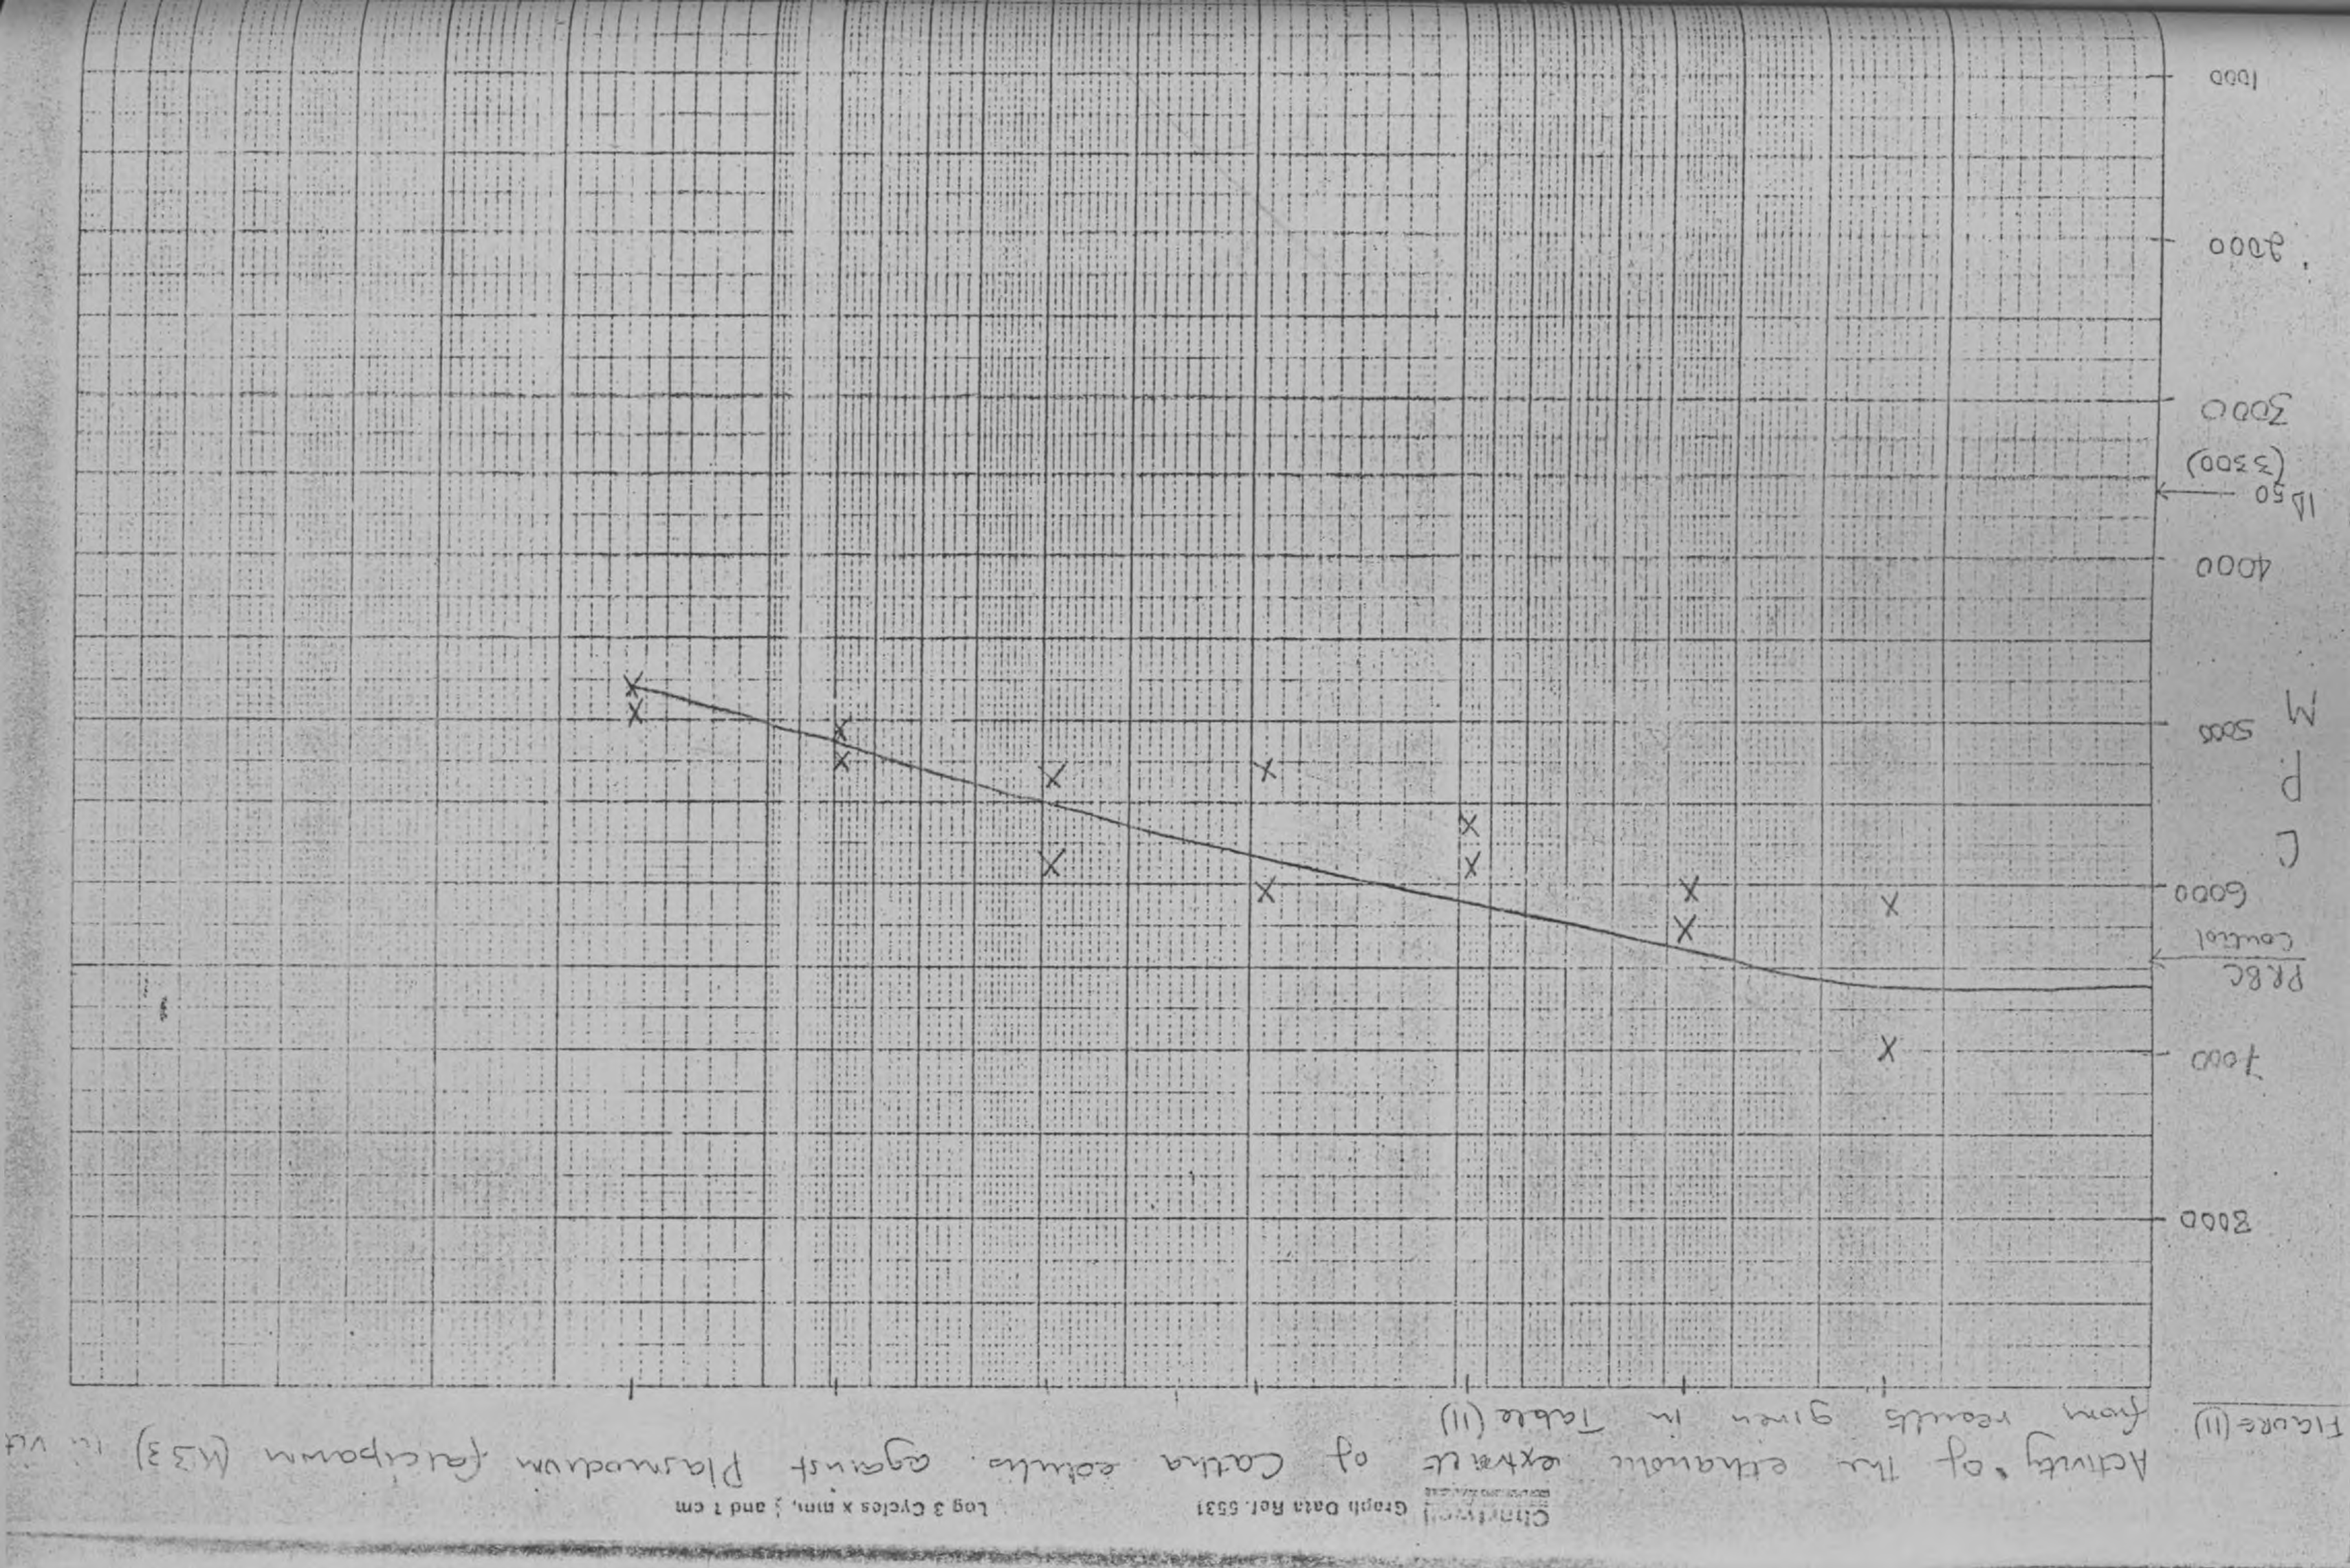 Chartwell Graph Data Ref. 5531 Log 3 Cycles x mm, ½ and 1 cm
Activity of the ethanolic extract of Catha edulis against Plasmodium falciparum (M33) in vit
FIGURE (11) from results given in Table (11)
8000
7000
PRBC
Control
6000
C
P
M
5000
4000
ID50
(3300)
3000
2000
1000